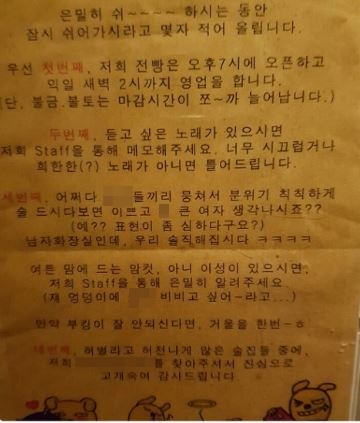 은밀히 쉬~~~~ 하시는 동안
잠시 쉬어가시라고 몇자 적어 올립니다.
우선 첫번째, 저희 전빵은 오후7시에 오픈하고
익일 새벽 2시까지 영업을 합니다.
단, 불금.불토는 마감시간이 쪼~까 늘어납니다.)
두번째, 듣고 싶은 노래가 있으시면
저희 Staff을 통해 메모해주세요. 너무 시끄럽거나
희한한(?) 노래가 아니면 틀어드립니다.
세번째, 어쩌다 들끼리 뭉쳐서 분위기 칙칙하게
술 드시다보면 이쁘고 큰 여자 생각나시죠??
(예?? 표현이 좀 심하다구요?)
남자화장실인데, 우리 솔직해집시다 ㅋㅋㅋㅋ
여튼 맘에 드는 암컷, 아니 이성이 있으시면,
저희 Staff을 통해 은밀히 알려주세요.
(쟤 엉덩이에 비비고 싶어-라고...)
만약 부킹이 잘 안되신다면, 거울을 한번-ㅎ
네번째, 허벌라고 허천나게 많은 술집들 중에,
저희 를 찾아주셔서 진심으로
고개숙여 감사드립니다